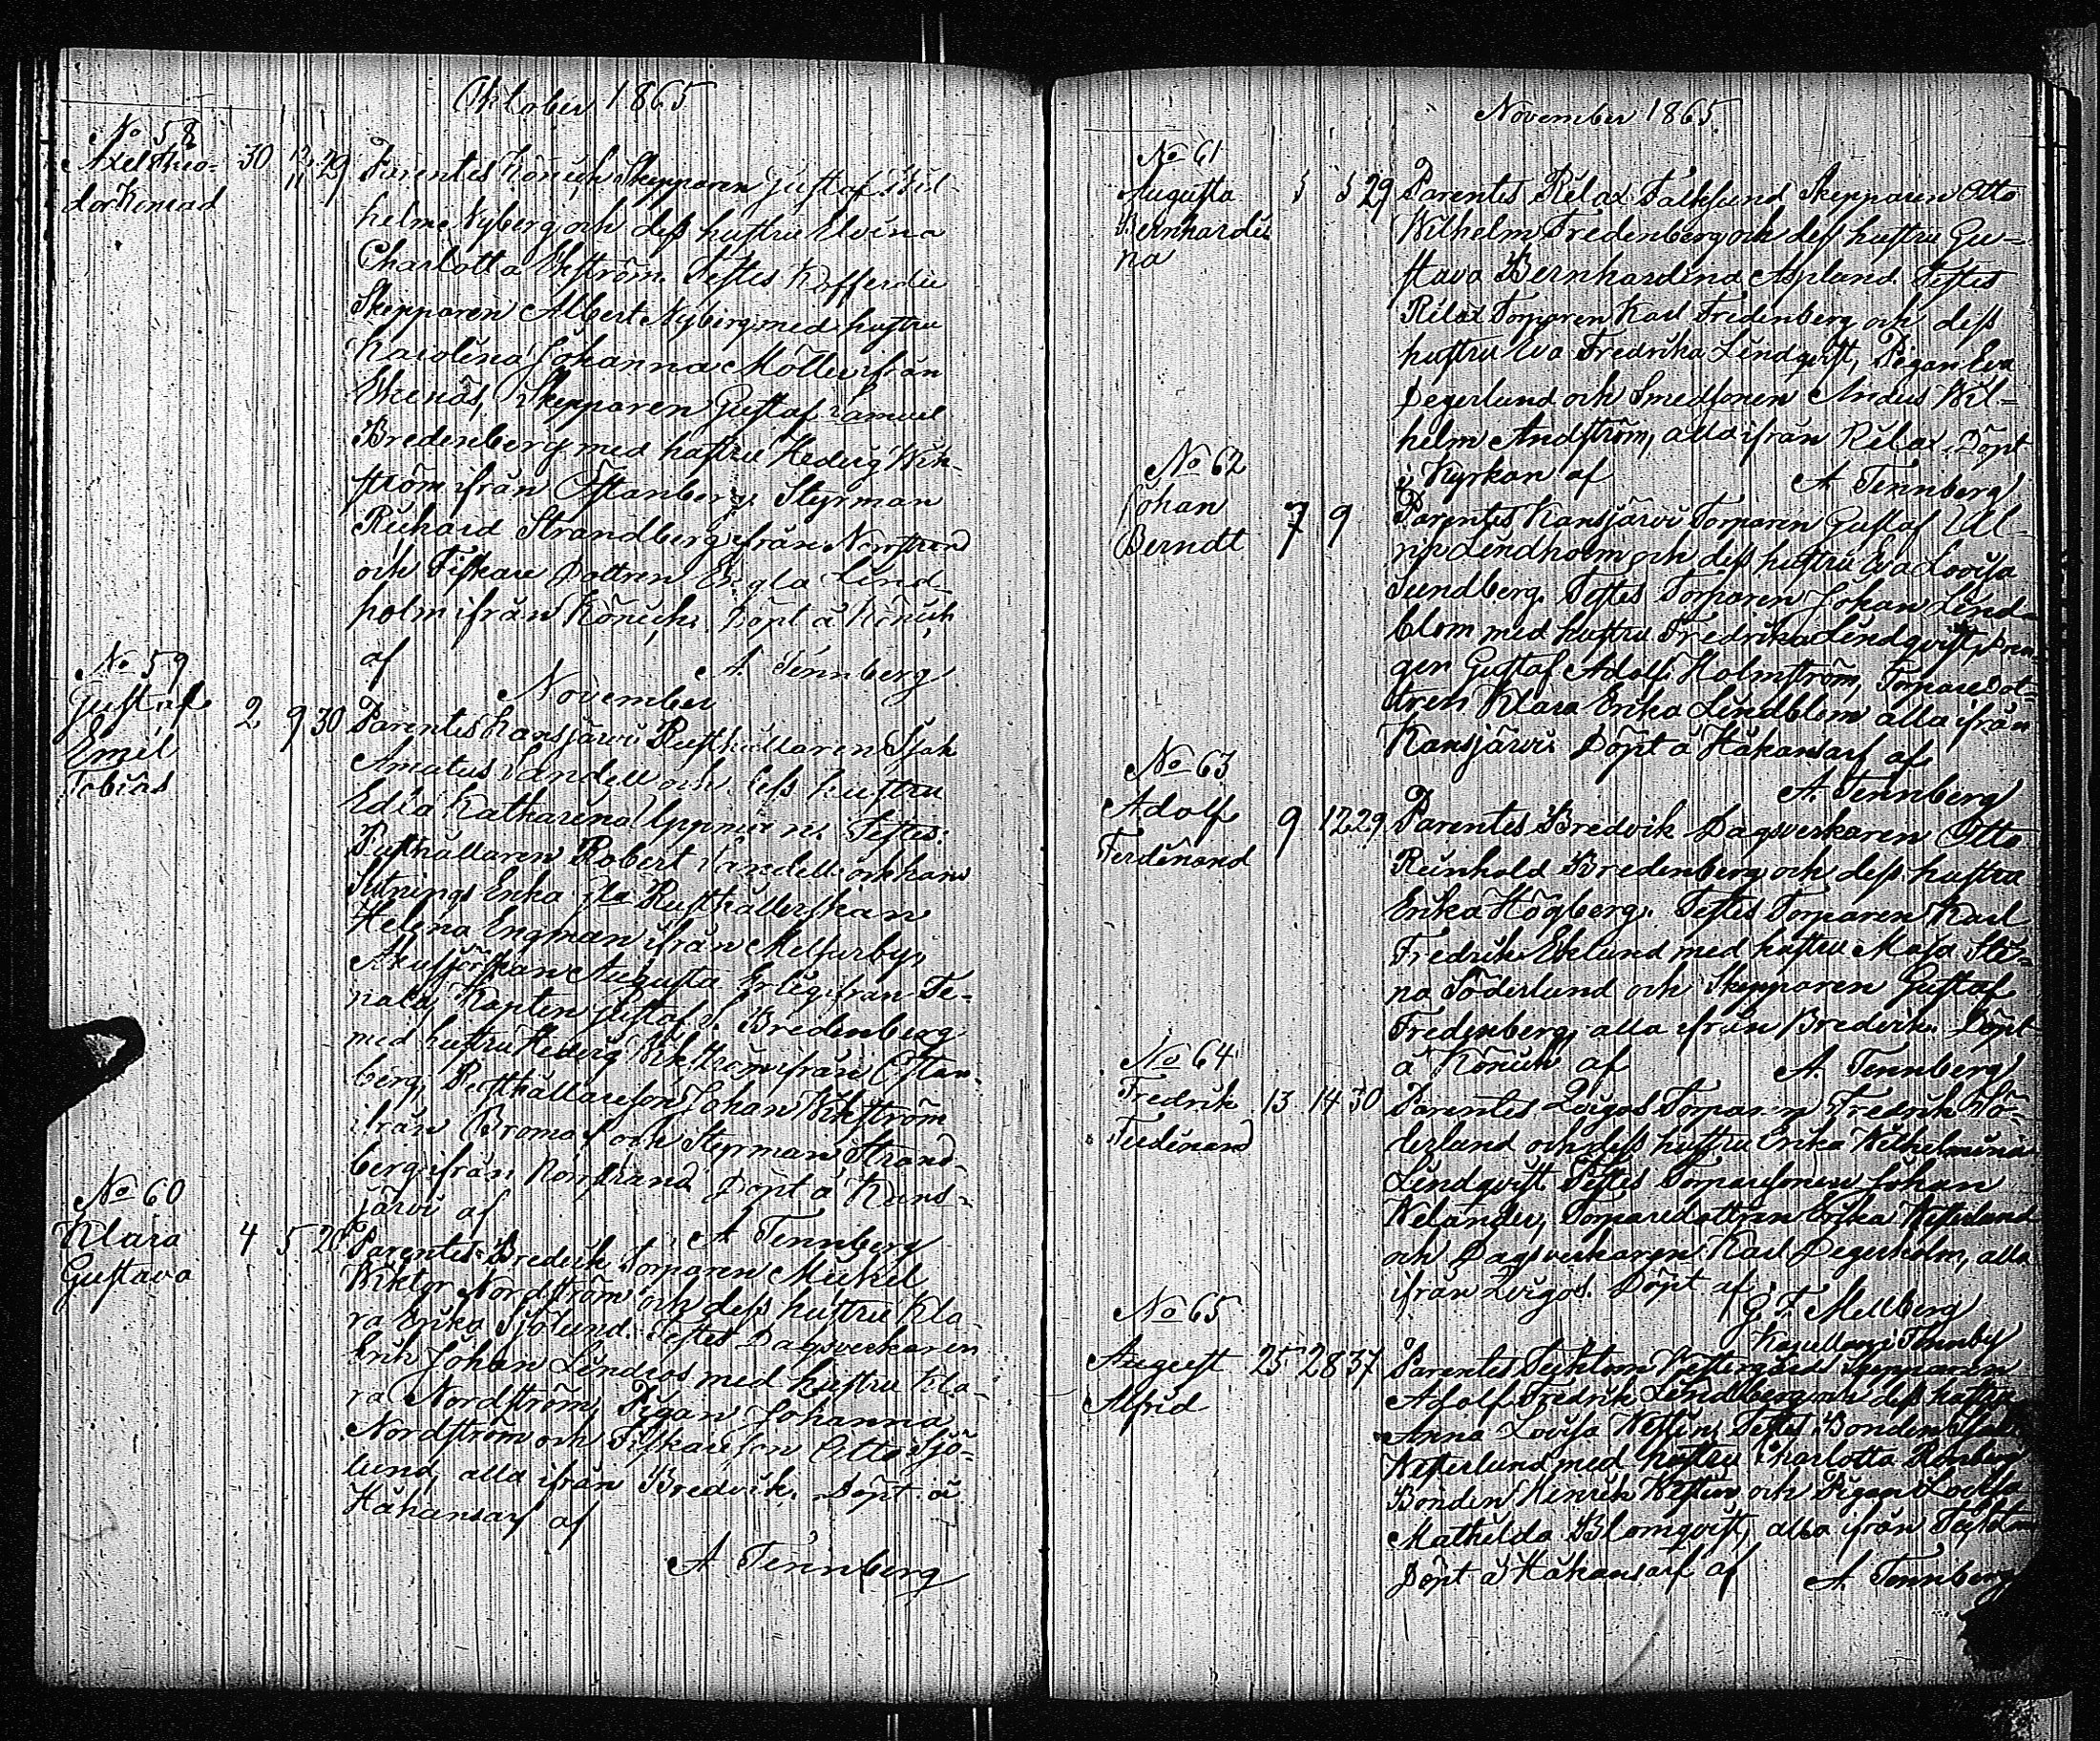 Oktober 1865
No 58
Axel Theo-
dor Konrad
30 12/11 29 Parentes Könik Skepparen Gustaf Wil-
helm Nyberg och dess hustru Elvina
Charlotta Ekström. Testes
Skepparen Albert Nyberg med hustru
Karolina Johanna Möller ifrån
Ekenäs, Skepparen Gustaf Samuel
Bredenberg med hustru Hedvig Wik-
ström ifrån Östanberg. Styrman
Richard Strandberg ifrån Norrstrand
och Fiskare dottren Engla Lind-
holm ifrån Könik. Döpt å Könik
af A. Tennberg
November
No 59
Gustaf
Emil
Tobias
2 9 30 Parentes Kansjärvi Rusthållaren Isak
Amatus Sandell och dess hustru
Edla Katharina Uppman. Testes:
Rusthållaren Robert Sandell och hans
Helena Engman ifrån Melfurby,
Augusta ifrån Te-
nala, Kapten Gustaf S. Bredenberg
med hustru Hedvig Wikström ifrån Östan-
berg, Rusthållaresonen Johan Wikström
ifrån Bromarf och Styrman Strand-
berg ifrån Norrstrand Döpt å Kans-
järvi af
A Tennberg
No 60
Klara
Gustava
4 5 28 Parentes Bredvik Torparen Mickel
Wiktor Nordström och dess hustru Kla-
ra Erika Sjölund. Testes Dagsverkaren
Erik Johan Lindros med hustru Kla-
ra Nordström, Pigan Johanna
Nordström och Fiskareson Otto Sjö-
lund, alla ifrån Bredvik. Döpt å
Håkansarf af
A Tennberg
November 1865
No 61
Augusta
Bernhardi
na
5 5 29 Parentes Rilax Falksund Skepparen Otto
Wilhelm Fredenberg och dess hustru Gu-
stava Bernhardina Asplund. Testes
Rilax Torparen Karl Fredenberg och dess
hustru Eva Fredrika Lindqvist, Pigan Eva
Degerlund och Smedsonen Anders Wil-
helm Andström, alla ifrån Rilax. Döpt
i Kyrkan af A. Tennberg
No 62
Johan
Berndt
7 9 Parentes Kansjärvi Torparen Gustaf Ul-
rik Lindholm och dess hustru Eva Lovisa
Sundberg. Testes Torparen Johan Lind-
blom med hustru Fredrika Lindqvist, Drän-
gen Gustaf Adolf Holmström, Torparedot-
tren Klara Erika Lindblom alla ifrån
Kansjärvi. Döpt å Håkansarf af
A. Tennberg
No 63
Adolf
Ferdinand
9 12 29 Parentes Bredvik Dagsverkaren Otto
Reinhold Bredenberg och dess hustru
Erika Högberg. Testes Torparen Karl
Fredrik Eklund med hustru Maja Sti-
na Söderlund och Skepparen Gustaf
Fredenberg, alla ifrån Bredvik. Döpt
å Könik af A. Tennberg
No 64
Fredrik
Ferdinand
13 14 30 Parentes Qvigos Torparen Fredrik Sö-
derlund och dess hustru Erika Wilhelmina
Lindqvist Testes Torparesonen Johan
Welander, Torparedottren Erika Westerlund
och Dagsverkaren Karl Degerholm, alla
ifrån Qvigos. Döpt af
G. F. Mellberg
Kapellan i Tennby
No 65
August
Alfrid
25 28 37 Parentes Täcktom Westergård Skepparen
Adolf Fredrik Lindberg och dess hustru
Anna Lovisa Westin. Testes: Bonden
Westerlund med hustru Charlotta
Bonden Henrik Westin och Pigan Lovisa
Mathilda Blomqvist, alla ifrån Täcktom
Döpt å Håkansarf af A. Tennberg